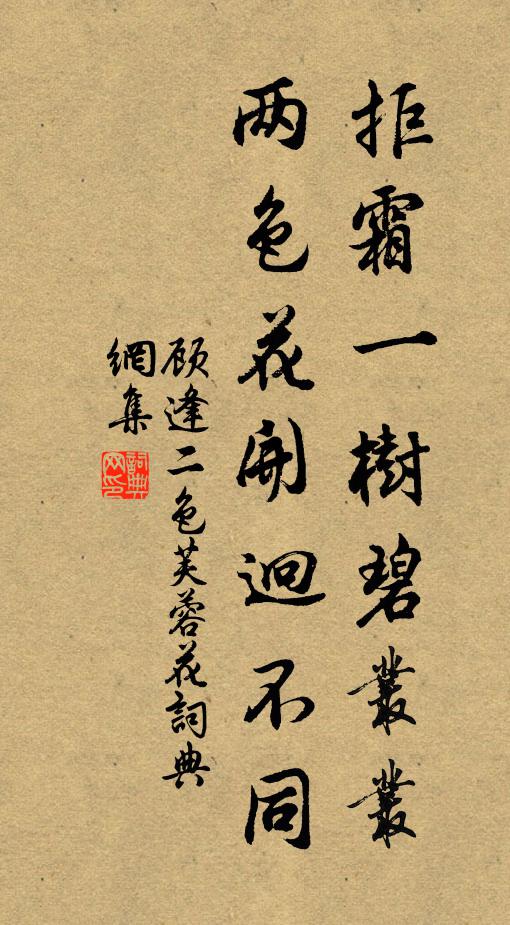 拒霜一樹碧叢叢
两色花開迥不同
顾逢二色芙蓉花詞典
網集
詞典
网印